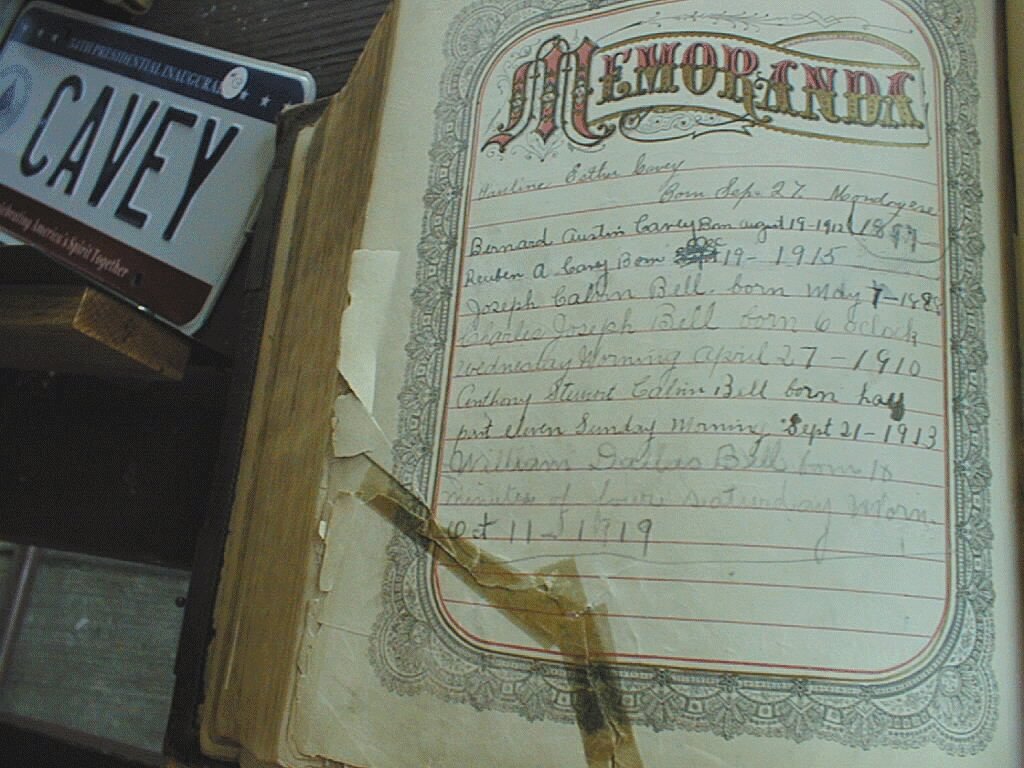 54TH PRESIDENTIAL INAUGURA
CAVEY
Celebrating America's Spirit Together
MEMORANDA
Pauline Esther Cavey
Born Sep. 27.
1897
Bernard Austin Cavey Born august 19-1912
Reuben A Cavey Born Dec 19- 1915
Joseph Calvin Bell. born May 7-1888
Charles Joseph Bell born 6 oclock
wednesday Morning April 27-1910
Anthony Stewart Calvin Bell born half
past eleven Sunday Morning Sept 21-1913
William Dallas Bell born 18
minutes of four saturday Morn.
Oct 11-1919